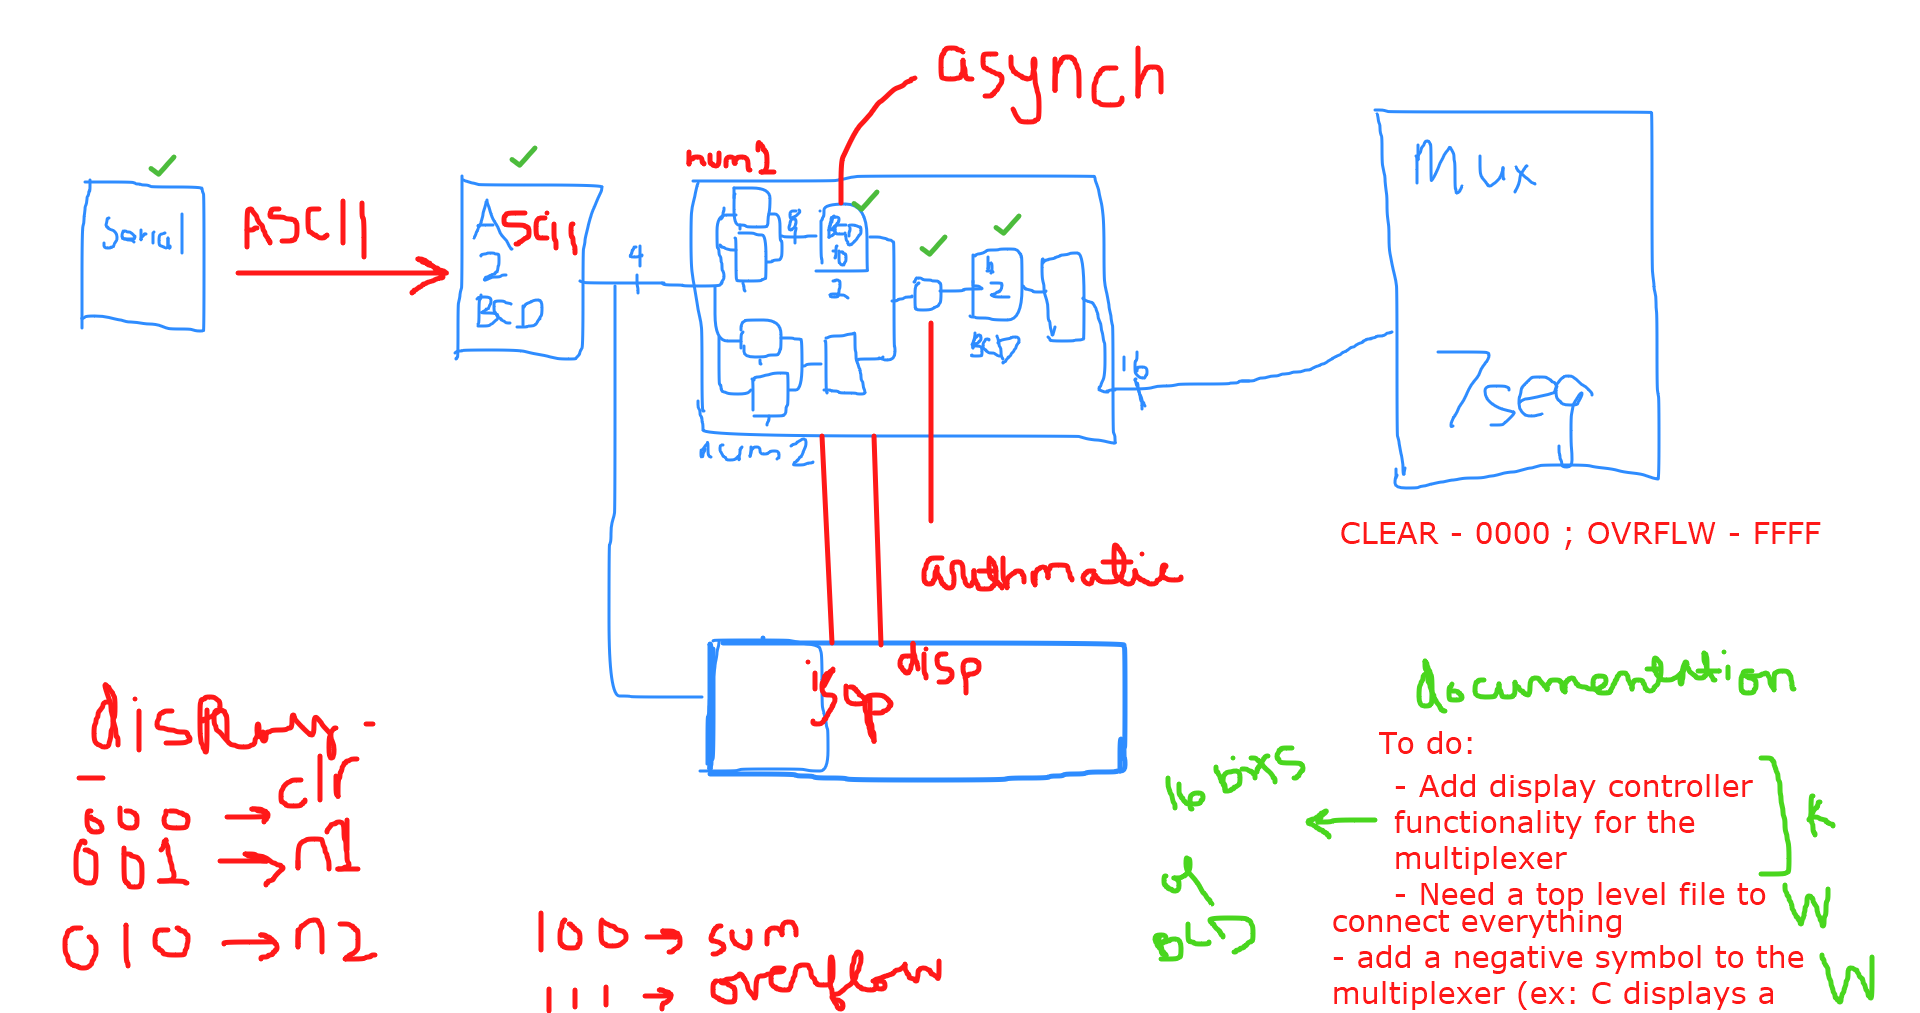 asynch
num1
Serial
ASCII
ASCII
2
BCD
4
8
BCD
to
2
2
BCD
num2
16
Mux
7seg
CLEAR - 0000 ; OVRFLW - FFFF
arithmatic
disp
display -
000 → clr
001 → n1
010 → n2
100 → sum
111 → overflow
documentation
16 bits
of
BCD
To do:
- Add display controller
functionality for the
multiplexer
K
- Need a top level file to
connect everything
W
- add a negative symbol to the
multiplexer (ex: C displays a
W